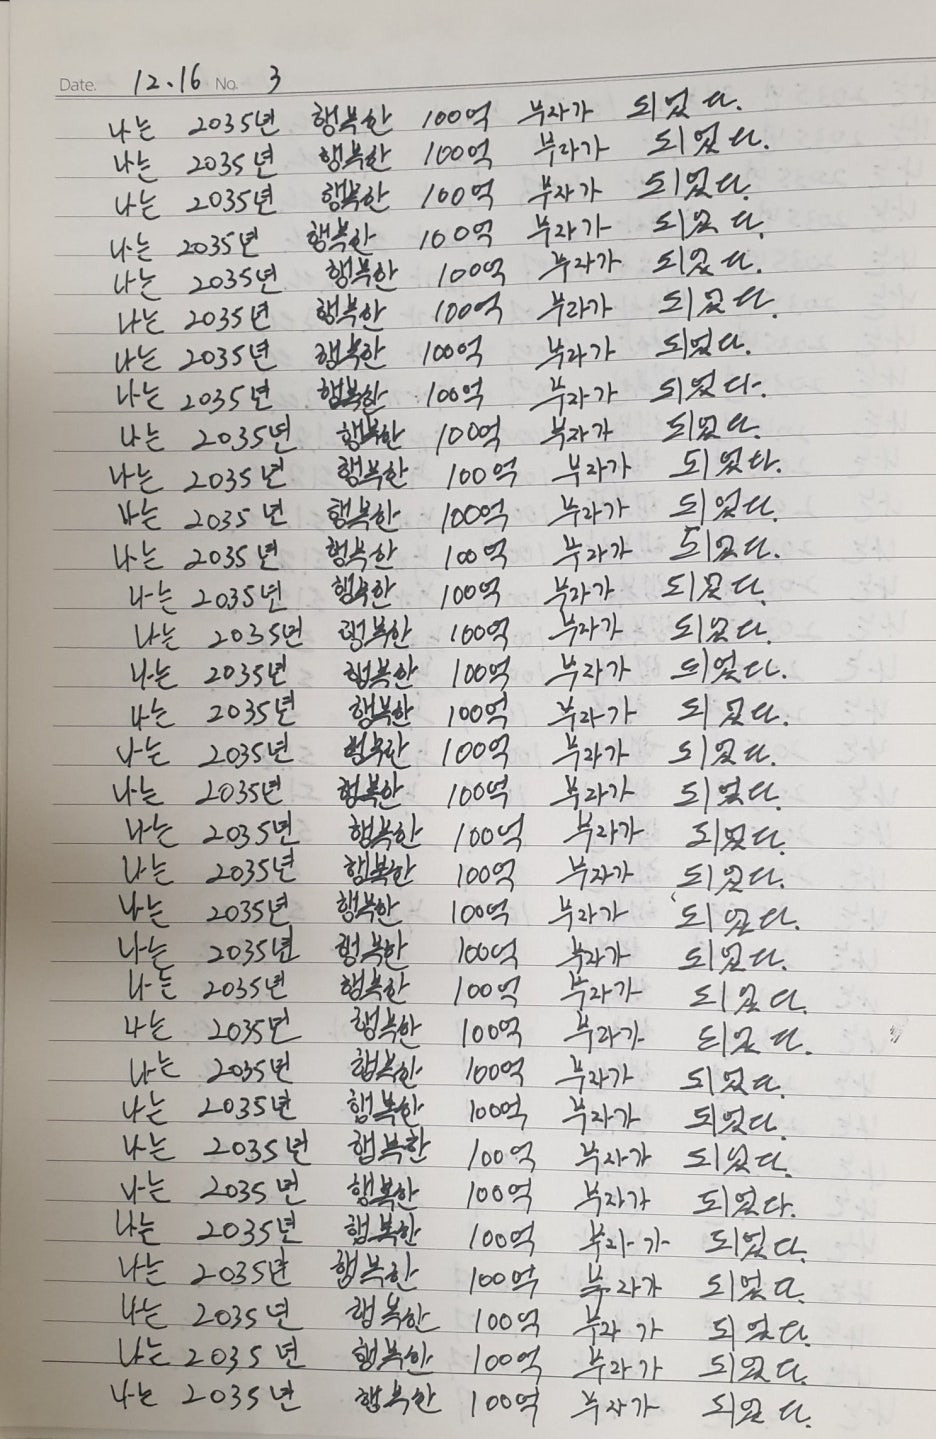 Date. 12.16 No. 3
나는 2035년 행복한 100억 부자가 되었다.
나는 2035년 행복한 100억 부자가 되었다.
나는 2035년 행복한 100억 부자가 되었다.
나는 2035년 행복한 100억 부자가 되었다.
나는 2035년 행복한 100억 부자가 되었다.
나는 2035년 행복한 100억 부자가 되었다.
나는 2035년 행복한 100억 부자가 되었다.
나는 2035년 행복한 100억 부자가 되었다.
나는 2035년 행복한 100억 부자가 되었다.
나는 2035년 행복한 100억 부자가 되었다.
나는 2035년 행복한 100억 부자가 되었다.
나는 2035년 행복한 100억 부자가 되었다.
나는 2035년 행복한 100억 부자가 되었다.
나는 2035년 행복한 100억 부자가 되었다.
나는 2035년 행복한 100억 부자가 되었다.
나는 2035년 행복한 100억 부자가 되었다.
나는 2035년 행복한 100억 부자가 되었다.
나는 2035년 행복한 100억 부자가 되었다.
나는 2035년 행복한 100억 부자가 되었다.
나는 2035년 행복한 100억 부자가 되었다.
나는 2035년 행복한 100억 부자가 되었다.
나는 2035년 행복한 100억 부자가 되었다.
나는 2035년 행복한 100억 부자가 되었다.
나는 2035년 행복한 100억 부자가 되었다.
나는 2035년 행복한 100억 부자가 되었다.
나는 2035년 행복한 100억 부자가 되었다.
나는 2035년 행복한 100억 부자가 되었다.
나는 2035년 행복한 100억 부자가 되었다.
나는 2035년 행복한 100억 부자가 되었다.
나는 2035년 행복한 100억 부자가 되었다.
나는 2035년 행복한 100억 부자가 되었다.
나는 2035년 행복한 100억 부자가 되었다.
나는 2035년 행복한 100억 부자가 되었다.